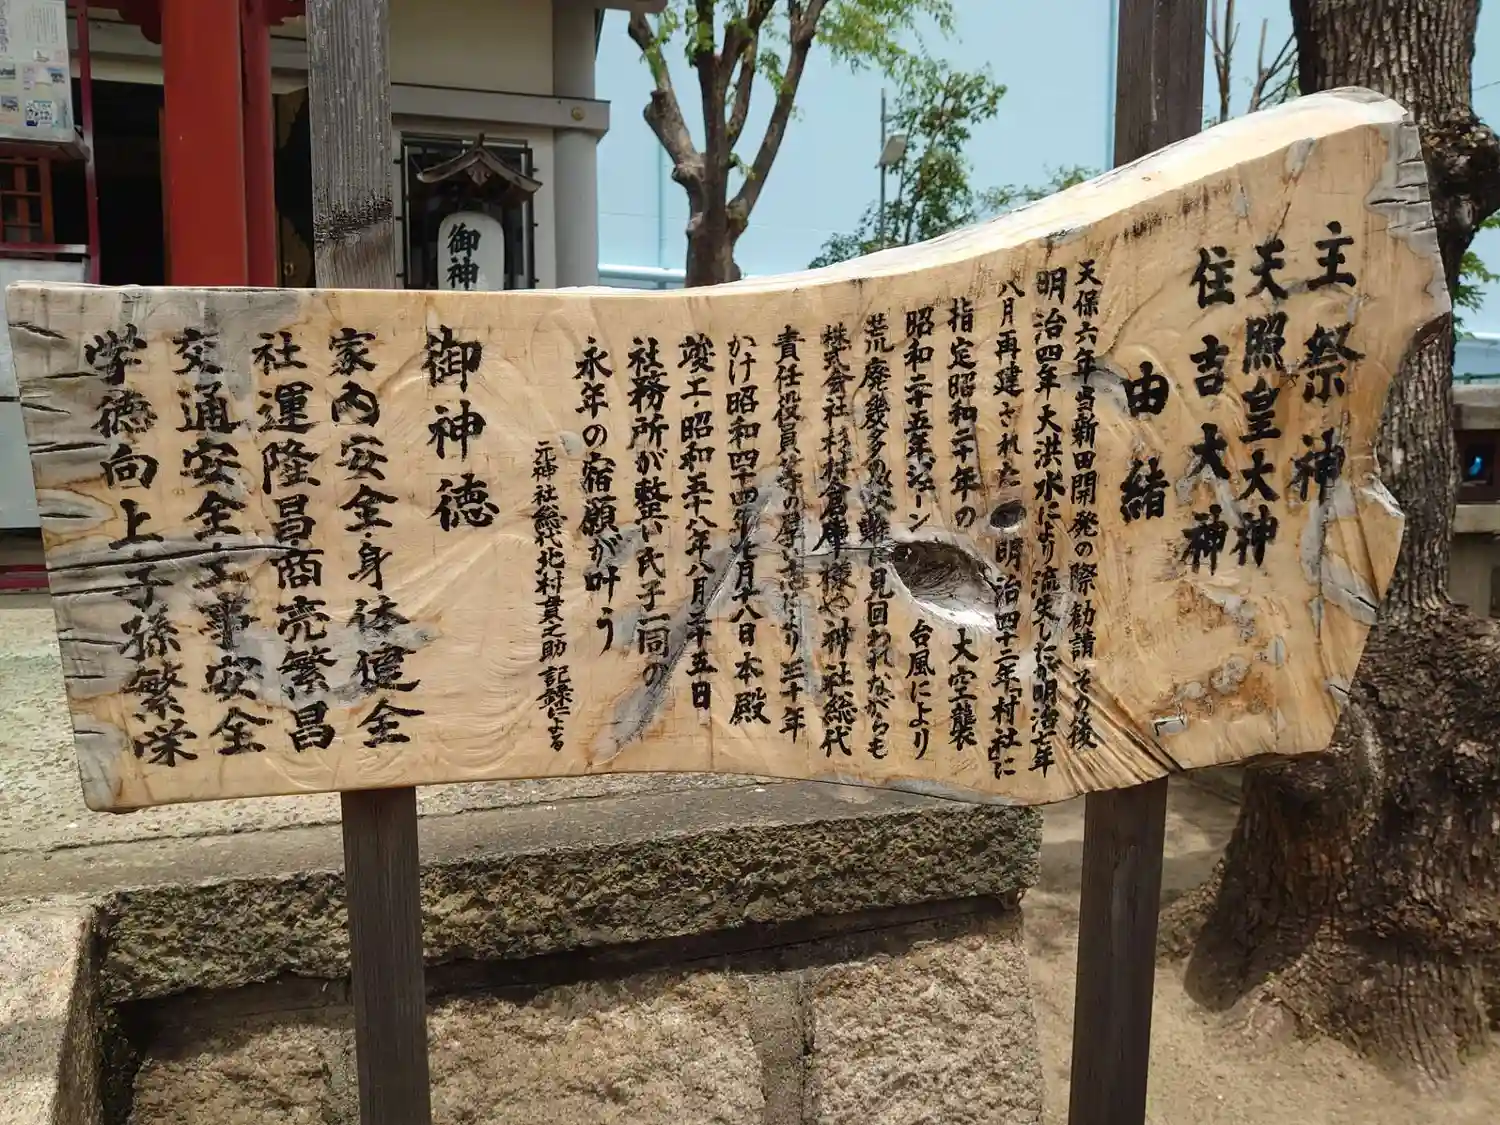 主祭神
天照皇大神
住吉大神
由緒
天保六年当新田開発の際勧請その後
明治四年大洪水により流失したが明治七年
八月再建された 明治四十二年「村社」に
指定昭和二十年の 大空襲
昭和二十五年ジェーン 台風により
荒廃幾多の災難に見回われながらも
株式会社杉村倉庫様や神社総代
責任役員等の厚志により三十年
かけ昭和四十四年七月十八日本殿
竣工昭和五十八年八月二十五日
社務所が整い氏子一同の
永年の宿願が叶う
元神社総代北村貫之助 記録による
御神徳
家内安全・身体健全
社運隆昌商売繁昌
交通安全工事安全
学徳向上子孫繁栄
御神